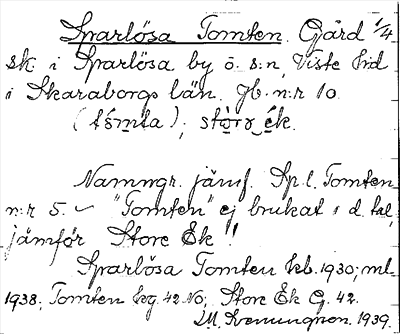 Sparlösa Tomten. Gård 1/4
sk i Sparlösa by o. s:n, Viste hd
i Skaraborgs län. Jb. n:r 10.
(tómta); stòrə ék.
Namngr. jämf. Sp. l. Tomten
n:r 5. "Tomten" ej brukat i d. tal,
jämför Store Ek!
Sparlösa Tomten kb. 1930; ml.
1938; Tomten Geg. 42 No; Store Ek G. 42.
1939.